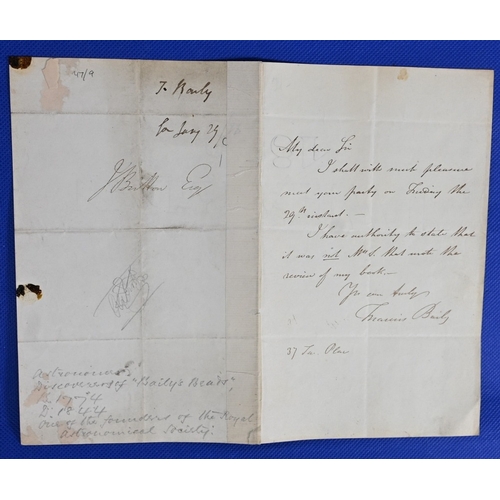 47/9
F. Baily
Jany 29
J Britton Esq
Astronomer.
Discoverer of "Baily's Beads",
B. 1774
D. 1844
One of the founders of the Royal
Astronomical Society.
My dear Sir
I shall with much pleasure
meet your party on Friday the
29th instant. —
I have authority to state that
it was not Mrs S. that wrote the
review of my book. —
Yrs very truly
Francis Baily
37 Ta. Place